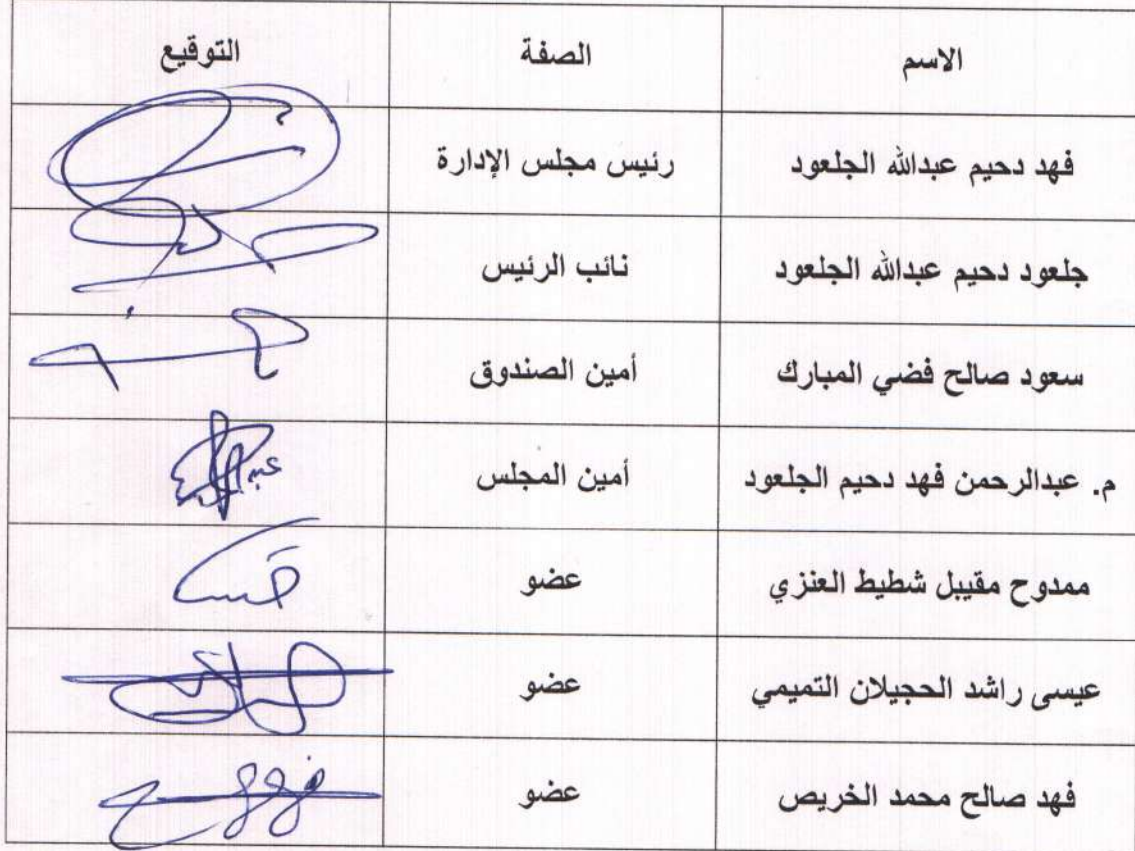 الاسم الصفة التوقيع
فهد دحيم عبدالله الجلعود رئيس مجلس الإدارة
جلعود دحيم عبدالله الجلعود نائب الرئيس
سعود صالح فضي المبارك أمين الصندوق
م. عبدالرحمن فهد دحيم الجلعود أمين المجلس
ممدوح مقيبل شطيط العنزي عضو
عيسى راشد الحجيلان التميمي عضو
فهد صالح محمد الخريص عضو